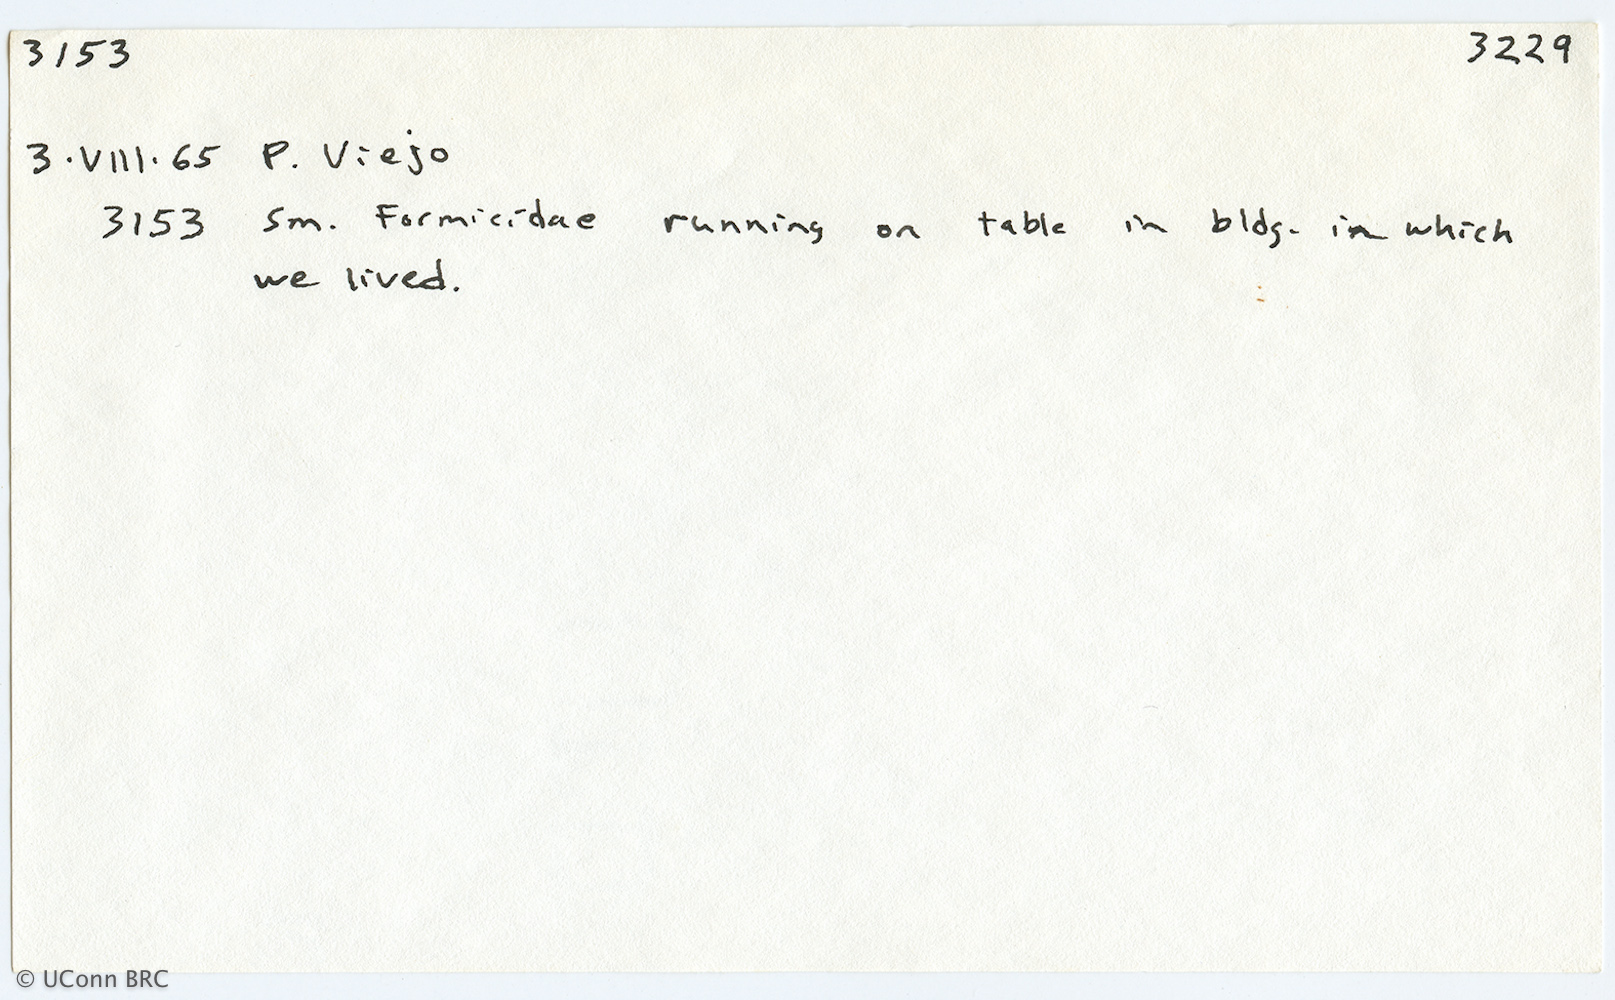 3153 3229
3·VIII·65 P. Viejo
3153 Sm. Formicidae running on table in bldg. in which
we lived.
© UConn BRC